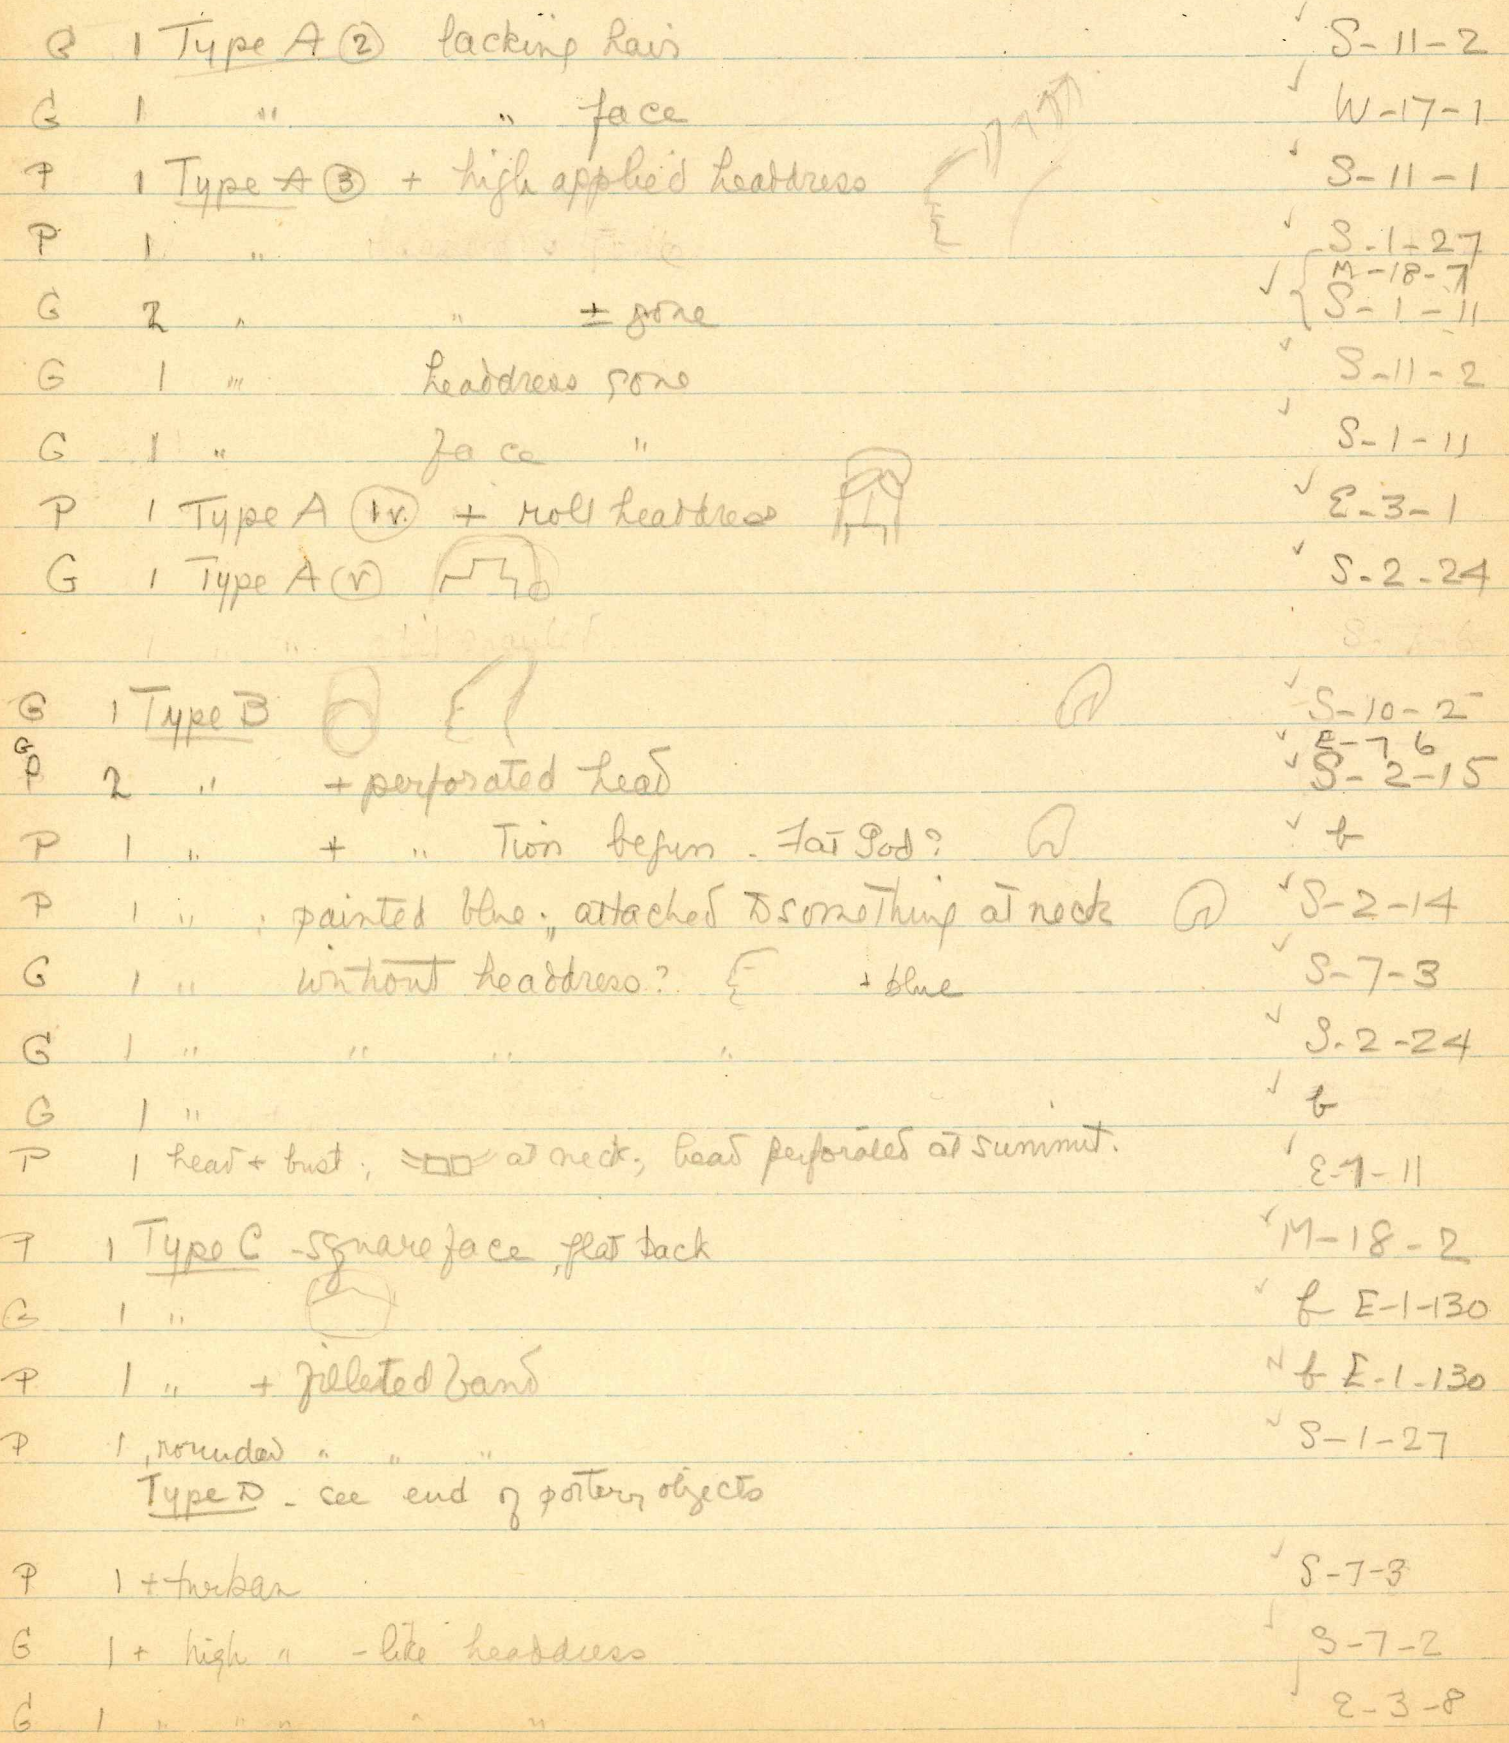 G 1 Type A ② lacking hair ✓ S-11-2
G 1 " " face ✓ W-17-1
P 1 Type A ③ + high applied headdress ✓ S-11-1
P 1 " ✓ S-1-27
M-18-7
G 2 " " ± gone ✓ S-1-11
G 1 " headdress gone ✓ S-11-2
G 1 " face " ✓ S-1-11
P 1 Type A (IV.) + roll headdress ✓ E-3-1
G 1 Type A (V) ✓ S-2-24
G 1 Type B ✓ S-10-2
G ✓ E-7 6
P 2 " + perforated head ✓ S-2-15
P 1 " + " tion begun - Fat God? ✓ b
P 1 " ; painted blue; attached to something at neck ✓ S-2-14
G 1 " without headdress? + blue ✓ S-7-3
G 1 " " " " ✓ S-2-24
G 1 " ✓ b
P 1 head + bust; at neck; head perforated at summit. ✓ E-7-11
P 1 Type C - square face, flat back ✓ M-18-2
G 1 " ✓ E-1-130
P 1 " + filleted band ✓ b E-1-130
P 1, rounded " " " ✓ S-1-27
Type D - see end of pottery objects
P 1 + turban ✓ S-7-3
G 1 + high " - like headdress ✓ S-7-2
G 1 " " " " " ✓ E-3-8